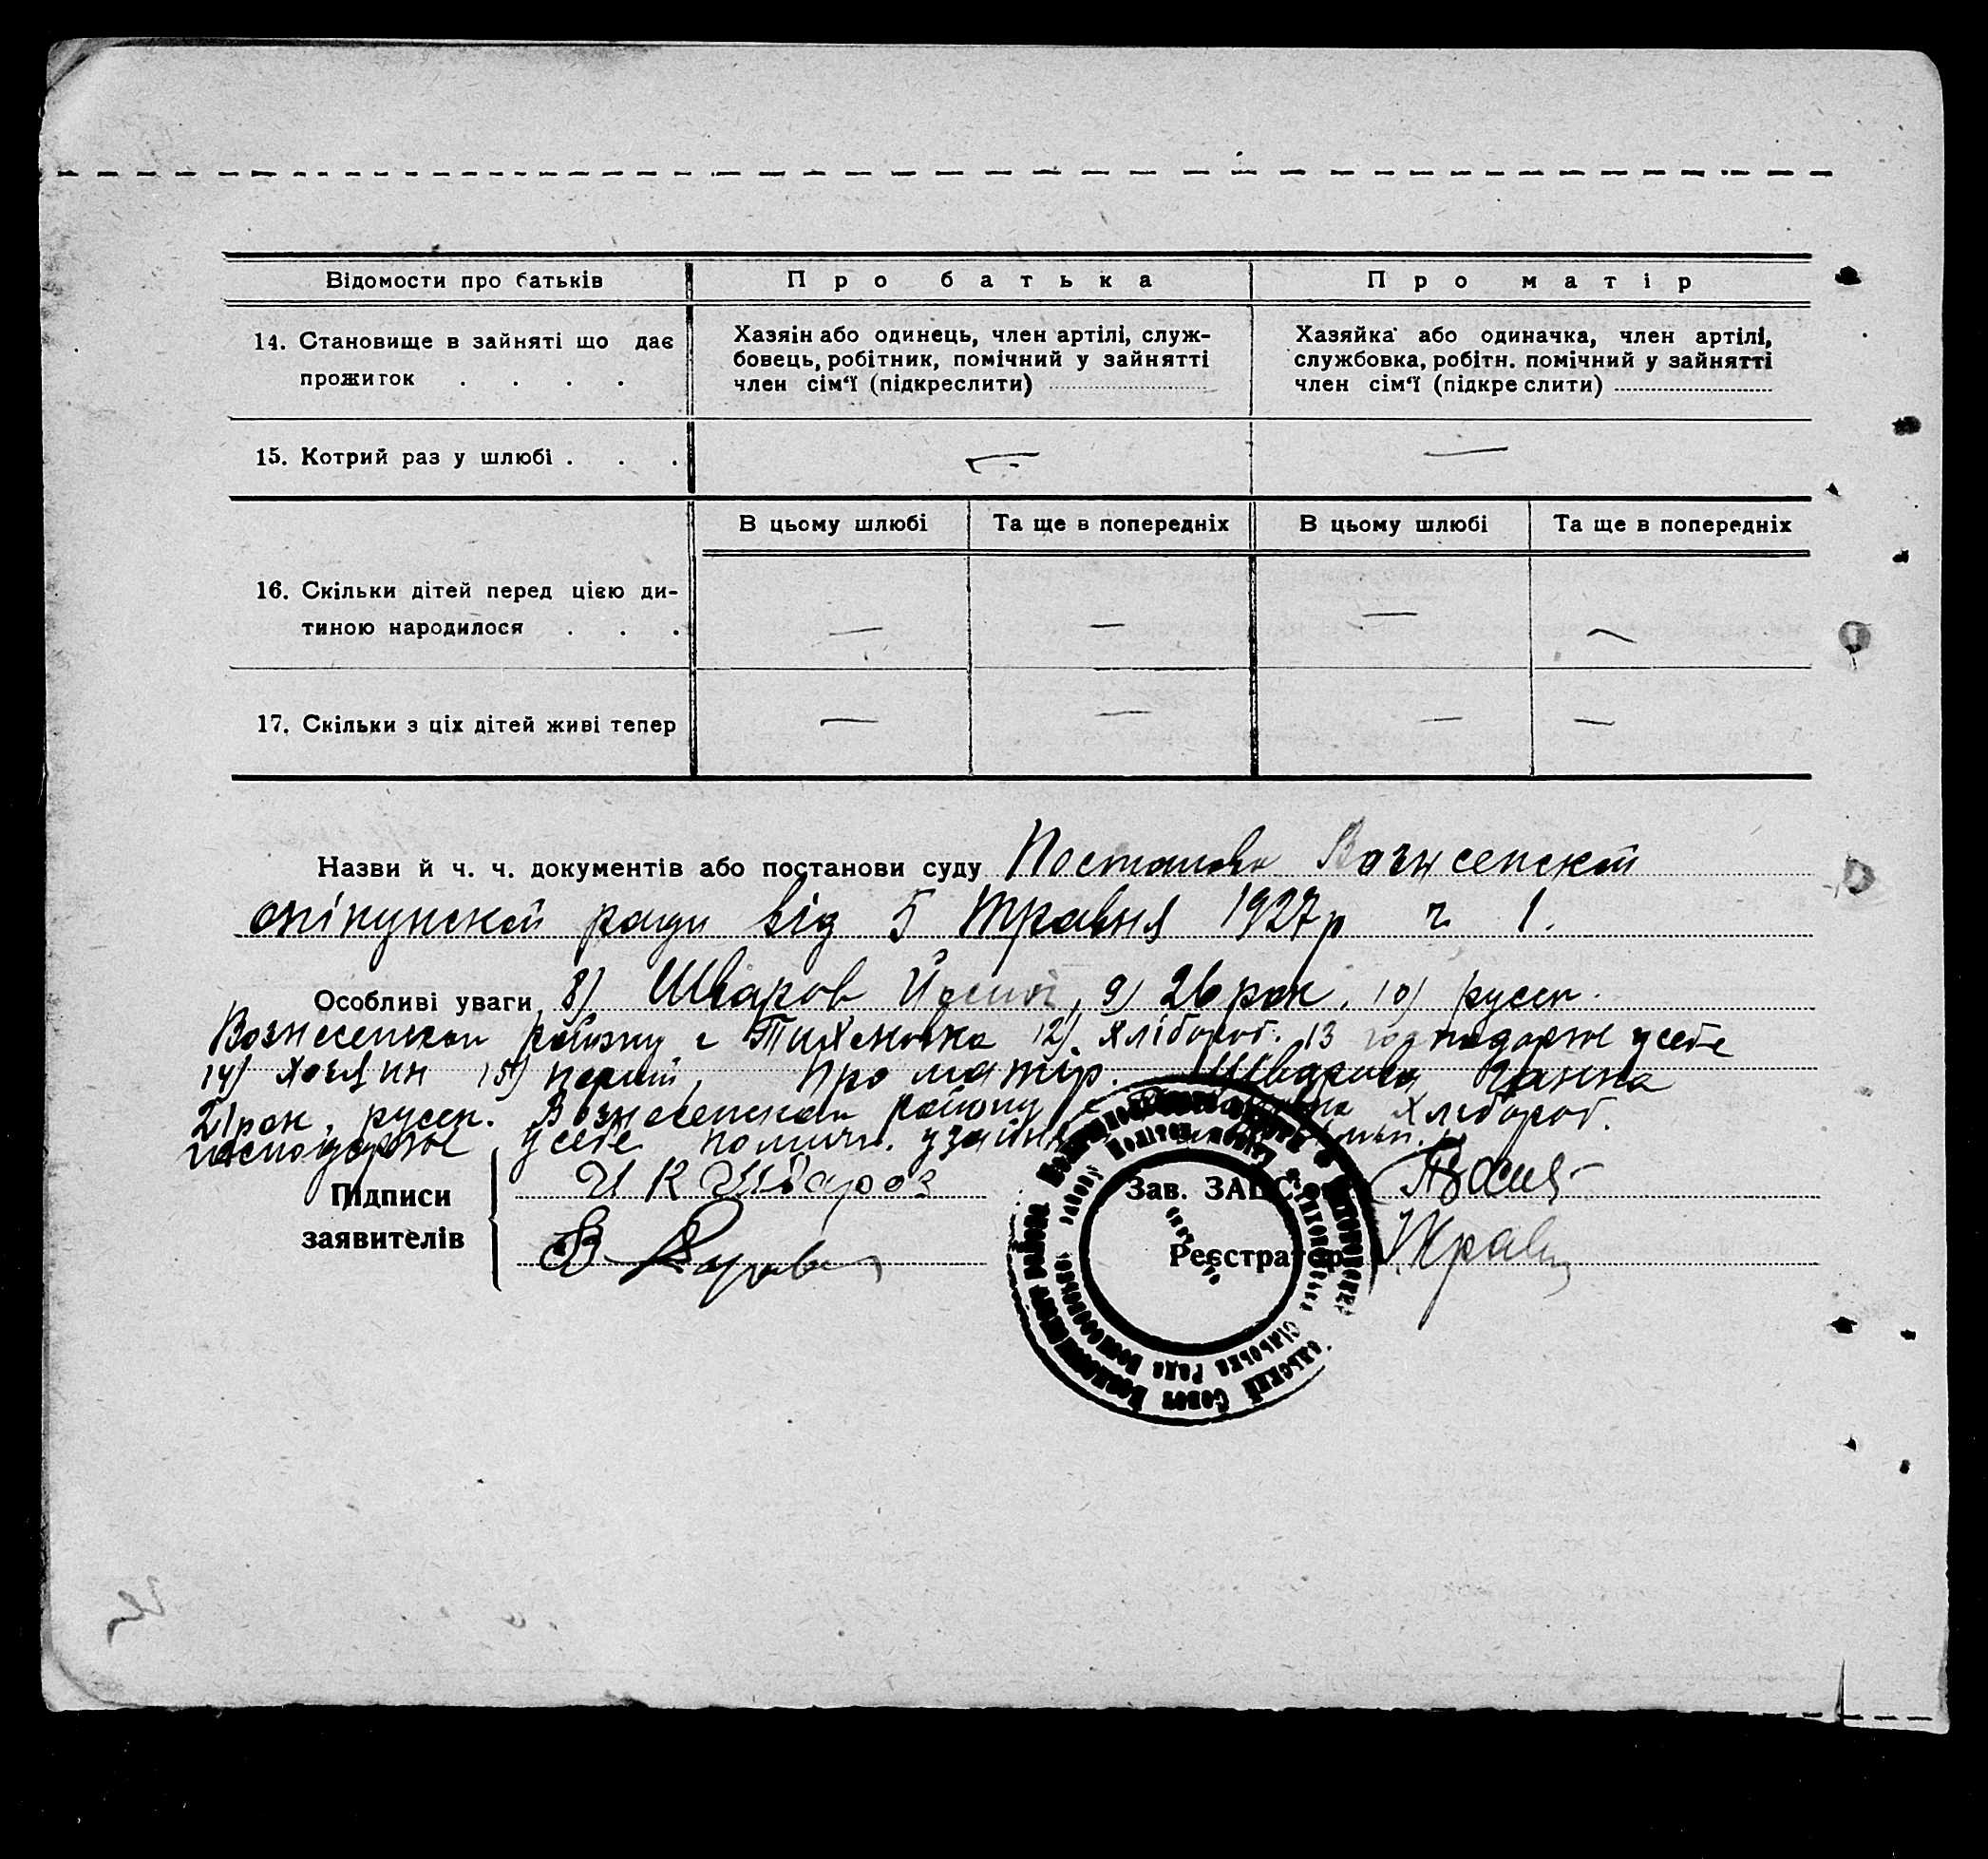 Відомости про батьків
Про батька
Про матір
14. Становище в зайняті що дає
прожиток . . . .
Хазяін або одинець, член артілі, служ-
бовець, робітник, помічний у зайнятті
член сім‘ї (підкреслити)
Хазяйка або одиначка, член артілі,
службовка, робітн. помічний у зайнятті
член сім‘ї (підкреслити)
15. Котрий раз у шлюбі . . .
—
—
В цьому шлюбі
Та ще в попередніх
В цьому шлюбі
Та ще в попередніх
16. Скільки дітей перед цією ди-
тиною народилося . . .
—
—
—
—
17. Скільки з ціх дітей живі тепер
—
—
—
—
Назви й ч. ч. документів або постанови суду Постанова
опікунскої ради від 5 травня 1927р ч 1.
Особливі уваги 8) Шваров 9) 26 рок. 10) русск.
Вознесенскои району с 12) хлібороб. 13 усебе
14) хозяин 15) перший, про матір. Шварова Ганна
21 рок, русск. Вознесенскои району с хлібороб.
усебе помичн.
Підписи
заявителів
И К Шваров
Зав. ЗАГС
Реєстратор
сільська Рада
Совет